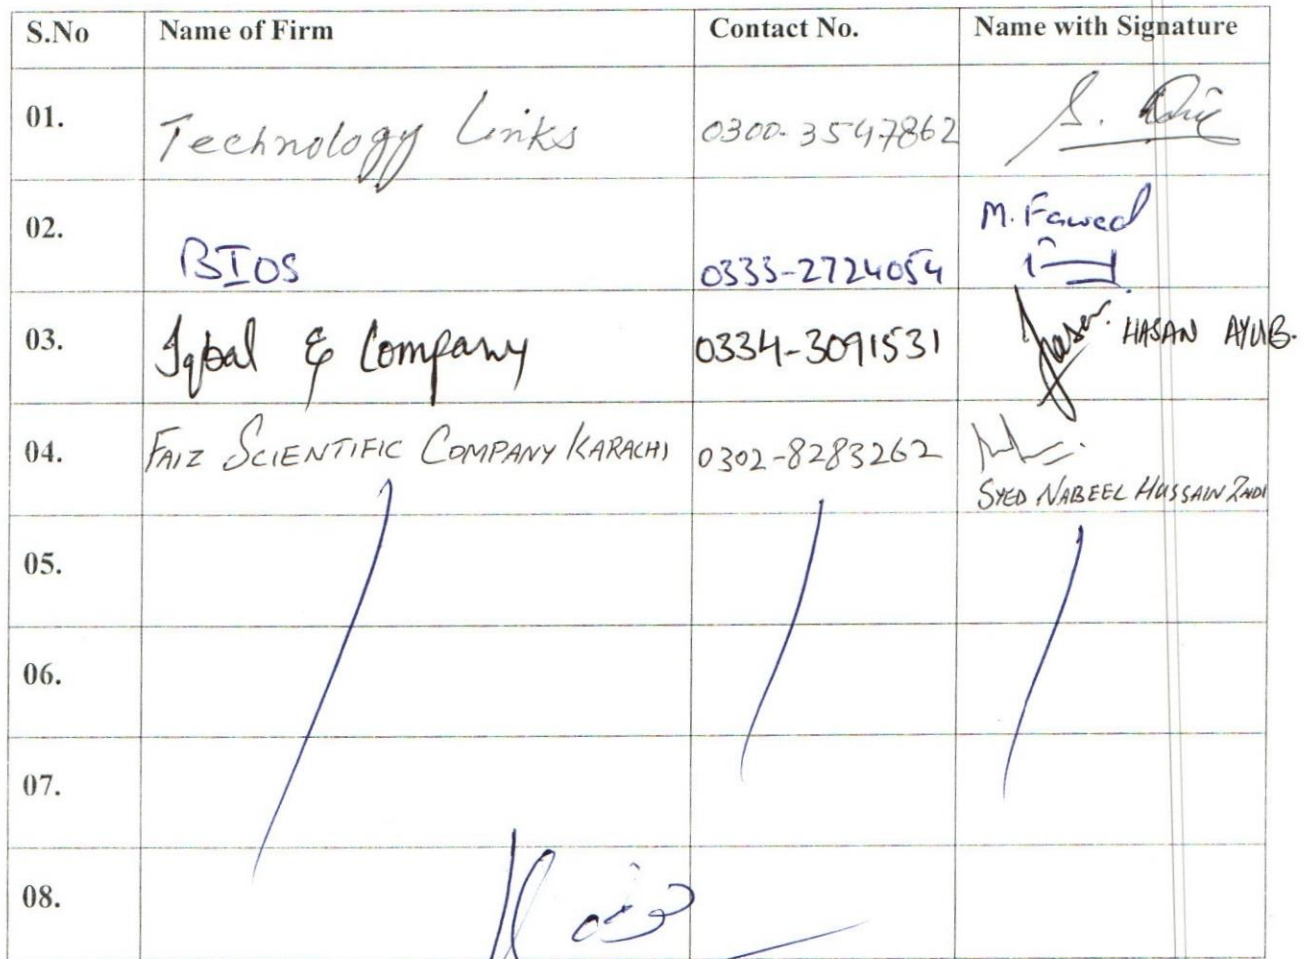 S.No Name of Firm Contact No. Name with Signature
01. Technology Links 0300-3547862
02. BIOS 0333-2724054 M. Fawad
03. Iqbal & Company 0334-3091531 HASAN AYUB.
04. FAIZ SCIENTIFIC COMPANY KARACHI 0302-8283262
SYED NABEEL HUSSAIN ZAIDI
05.
06.
07.
08.